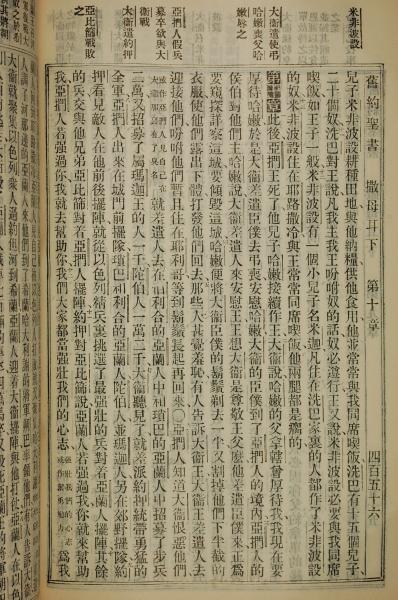 舊約聖書 撒母耳下 第十章 四百五十六
米非波設
兒子米非波設耕種田地與他納糧供他食用他並常常與我同席喫飯洗巴有十五個兒子
二十個奴洗巴對王說凡我主我王吩咐奴的話奴必遵行王又說米非波設必要與我同席
喫飯如王子一般米非波設有一個小兒子名米迦凡住在洗巴家裏的人都作了米非波設
的奴米非波設住在耶路撒冷與王常常同席喫飯他兩腿都是瘸的
大衛遣使弔
哈嫩喪父哈
嫩辱之
第十章此後亞捫王死了他兒子哈嫩接續作王大衛說哈嫩的父拿轄曾厚待我我現在要
厚待哈嫩於是大衛差遣臣僕去弔喪安慰哈嫩大衛的臣僕到了亞捫人的境內亞捫人的
侯伯對他們主哈嫩說大衛差遣人來安慰王王想大衛是尊敬王父麼他差遣臣僕來正是
要窺探詳察這城要傾毀這城哈嫩便將大衛臣僕的鬍鬚剃去一半又割掉他們下半截的
衣服使他們露出下體打發他們回去那些人甚覺羞恥有人告訴大衛王大衛王差遣人去
迎接他們吩咐他們暫且住在耶利哥等到鬍鬚長起再回來○亞捫人知道大衛恨惡他們
亞捫人假兵
募卒欲與大
衛戰
大衛遣約押
或作亞捫人見自己在大衛那裏有了臭名就差遣人去在伯利合的亞蘭人中和瑣巴的亞蘭人中招募了步兵
二萬又招募了屬瑪迦王的人一千陀伯人一萬二千大衛聽見了就差派約押統帶勇猛的
全軍亞捫人出來在城門前擺隊瑣巴和利合的亞蘭人陀伯人並瑪迦人另在郊野擺隊約
亞比篩戰敗
之
押看見敵人在他前後擺陣就從以色列精兵裏挑選了最强壯的兵對着亞蘭人擺陣其餘
的兵交與他兄弟亞比篩對着亞捫人擺陣約押對亞比篩說亞蘭人若强過我你就來幫助
我亞捫人若强過你我就去幫助你我們大家都當强壯我們的心志
爲我